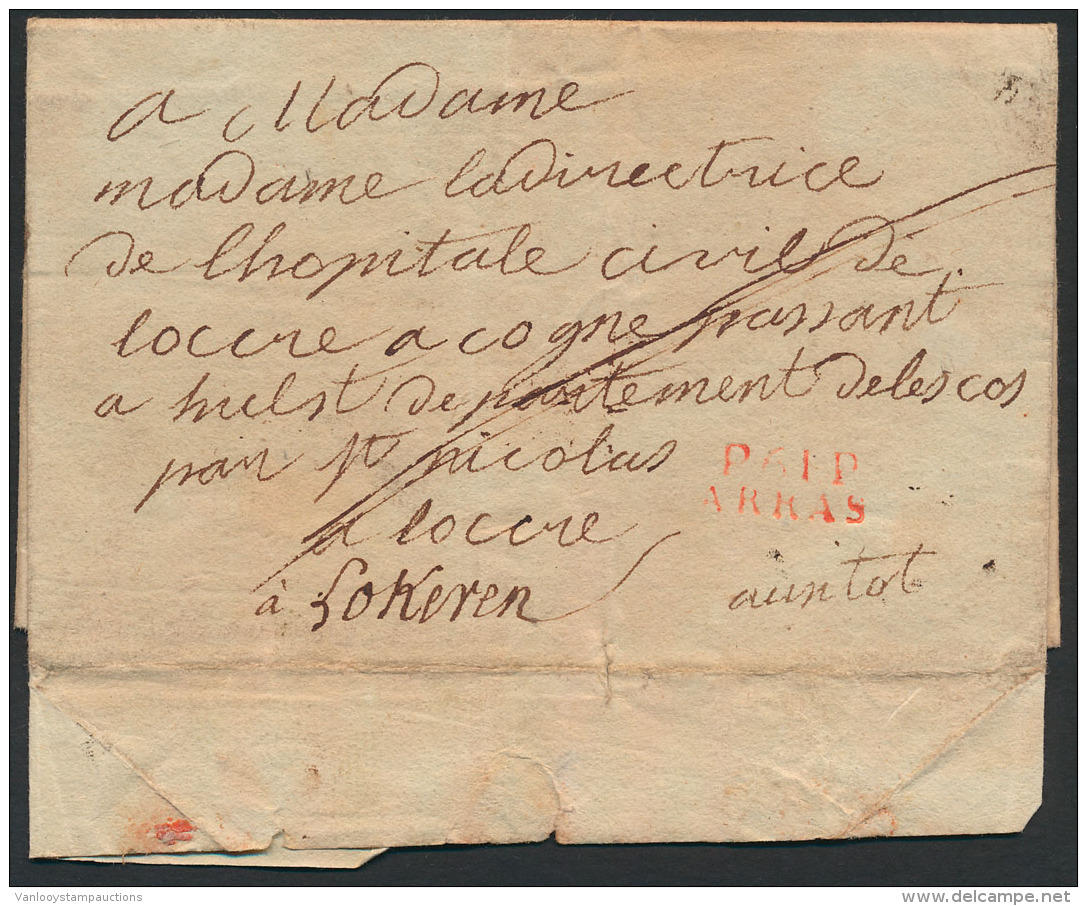 a Madame
madame ladirectrice
de lhopitale civil de
loccre a cogne passant
a hulst departement delescos
par st nicolas
a loccre
à Lokeren
P61P
ARRAS
Vanlooystampauctions
delcampe.net